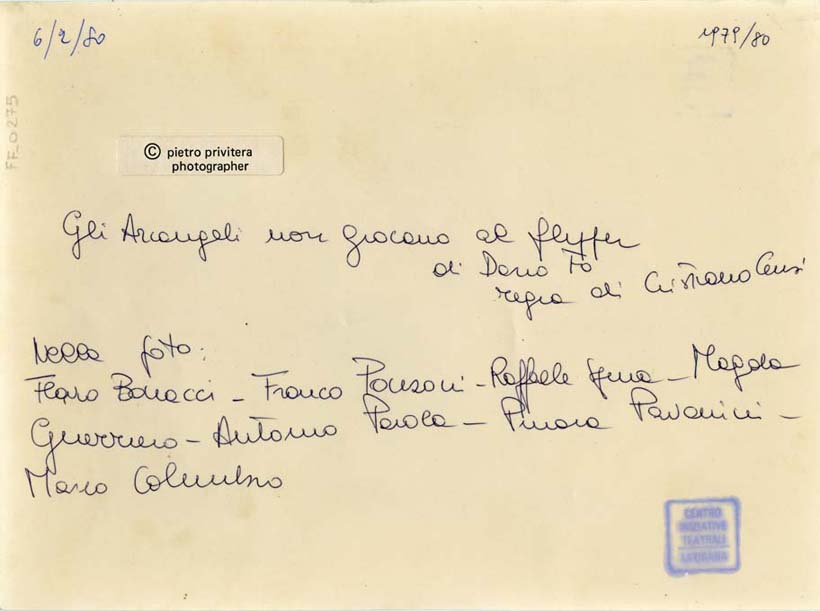 6/2/80
1979/80
FF_0275
© pietro privitera
photographer
Gli Arcangeli non giocano al flipper
di Dario Fo
regia di Cristiano Censi
Nella foto:
Flavio Bonacci - Franco Ponzoni - Raffaele - Magda
Guerriero - Antonio Parola - Pinara Pavanini -
Marco Columbro
CENTRO
INIZIATIVE
TEATRALI